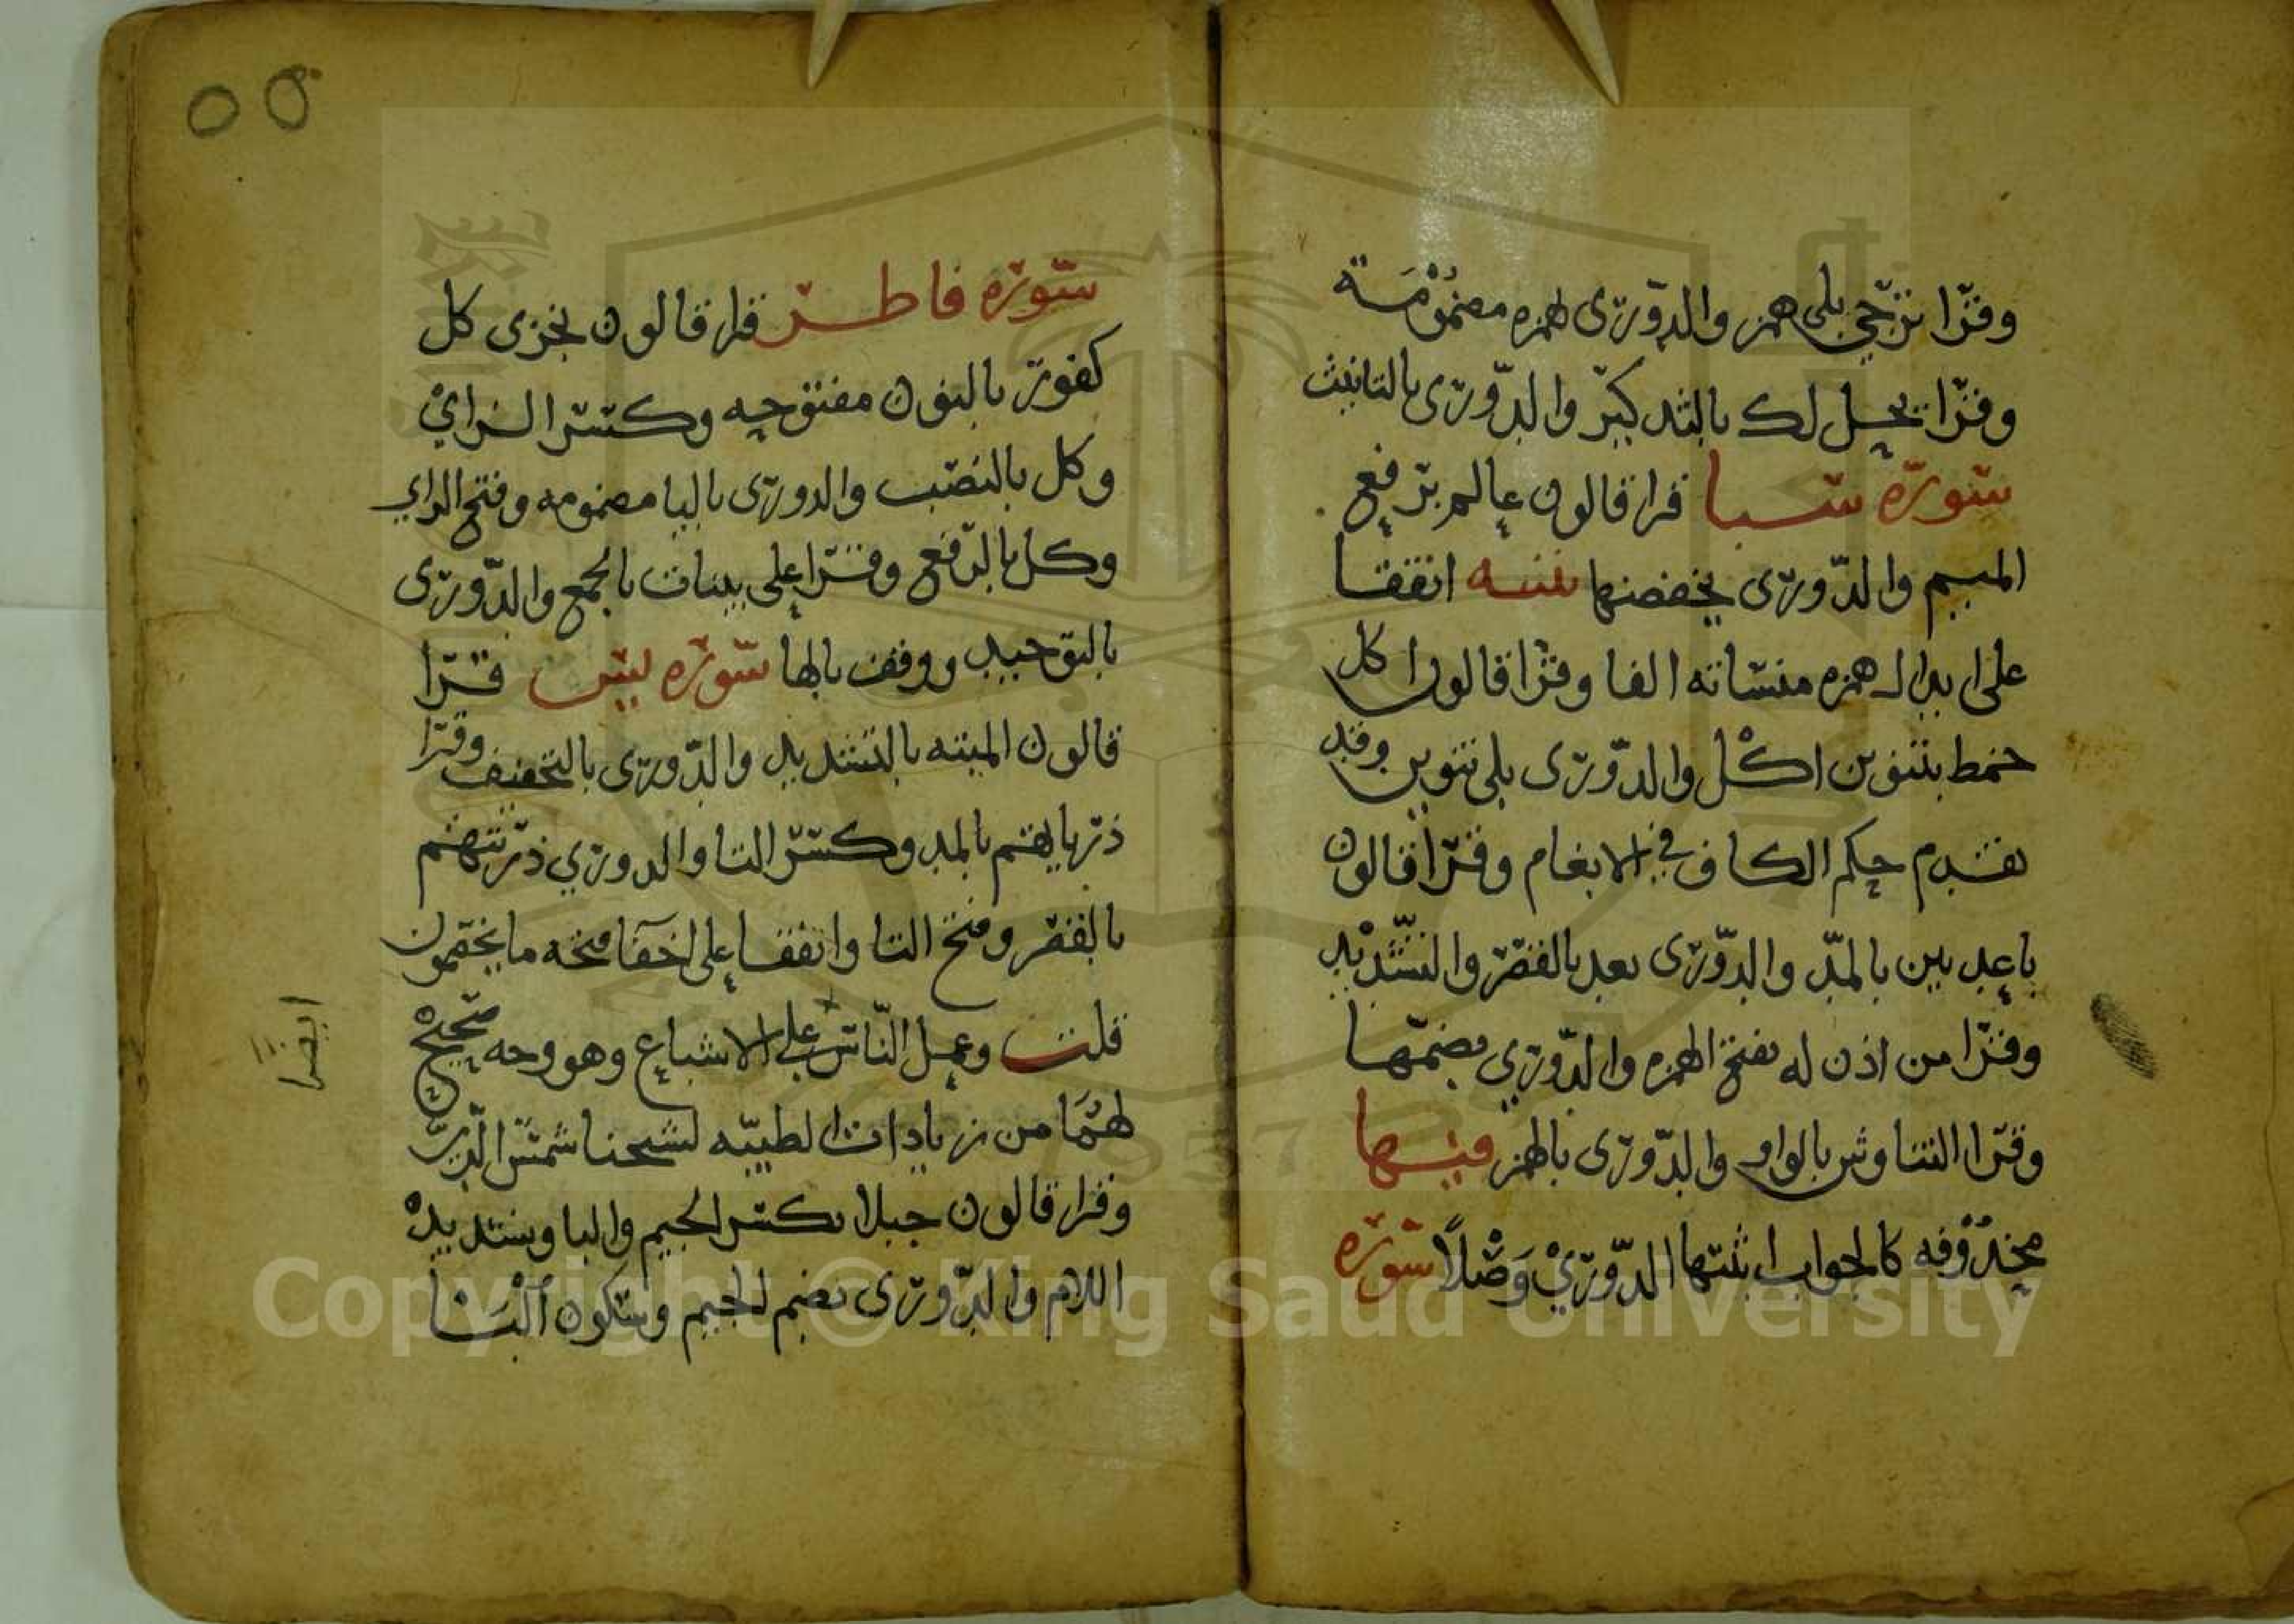 وقرا ترجي بلى همز والدوري بهمزه مضمومة
وقرا يحل لك بالتدكير والدوري بالتانيث
سورة سبا قرا قالون عالم برفع
الميم والدوري بخفضها تنبيه اتفقا
على ابدال همزه منساته الفا وقرا قالون اكل
خمط بتنوين اكل والدوري بلى تنوين وقد
تقدم حكم الكاف في الادغام وقرا قالون
باعد بين بالمد والدوري بعد بالقصر والتشديد
وقرا من اذن له بفتح الهمزه والدوري بضمها
وقرا التناوش بالواو والدوري بالهمز فيها
محذوفه كالجواب اثبتها الدوري وصلا سورة
٥٥
سورة فاطر قرا قالون نجزي كل
كفور بالنون مفتوحه وكسر الزاي
وكل بالنصب والدوري باليا مضمومه وفتح الزاي
وكل بالرفع وقرا على بينات بالجمع والدوري
بالتوحيد ووقف بالها سورة يس قرا
قالون الميته بالتشديد والدوري بالتخفيف وقرا
ذرياتهم بالمد وكسر التا والدوري ذريتهم
بالقصر وفتح التا واتفقا على اخفا فتحه خا يخصمون
قلت وعمل الناس على الاشباع وهو وجه صحيح
لهما من زيادات الطيبه لشيخنا شمس الدين
وقرا قالون جبلا بكسر الجيم والبا وتشديد
اللام والدوري بضم الجيم وسكون البا
ايضا
Copyright © King Saud University
1957